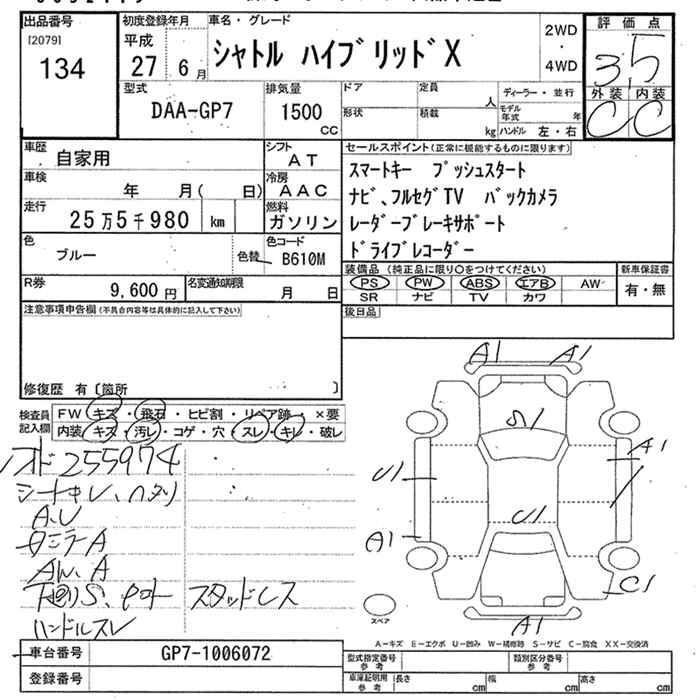 出品番号
[2079]
134
初度登録年月
平成
27 6月
車名・グレード
シャトル ハイブリッド X
2WD
・
4WD
評価点
3,5
外装 内装
C C
型式
DAA-GP7
排気量
1500
CC
ドア
定員
人
形状
積載
kg
ディーラー・並行
モデル年式
年
ハンドル 左・右
車歴
自家用
シフト
AT
車検
年 月( 日)
冷房
AAC
走行
25万5千980 km
燃料
ガソリン
色
ブルー
色替
色コード
B610M
R券
9,600円
名変通知期限
月 日
セールスポイント(正常に機能するものに限ります)
スマートキー プッシュスタート
ナビ、フルセグTV バックカメラ
レーダーブレーキサポート
ドライブレコーダー
装備品(純正品に限り○をつけてください)
PS PW ABS エアB AW
SR ナビ TV カワ
新車保証書
有・無
後日品
注意事項申告欄(不具合内容等は具体的に記入して下さい)
修復歴 有〔箇所 〕
検査員記入欄
FW キズ・飛石・ヒビ割・リペア跡・×要
内装 キズ・汚レ・コゲ・穴・スレ・キレ・破レ
255974
A.U
A
スタッドレス
ハンドルスレ
A1 A1
U1
A1
U1
A1
C1
A1
スペア
A-キズ E-エクボ U-凹み W-補修跡 S-サビ C-腐食 XX-交換済
車台番号
GP7-1006072
登録番号
型式指定番号
参考
類別区分番号
参考
車庫証明用
参考
長さ cm
幅 cm
高さ cm